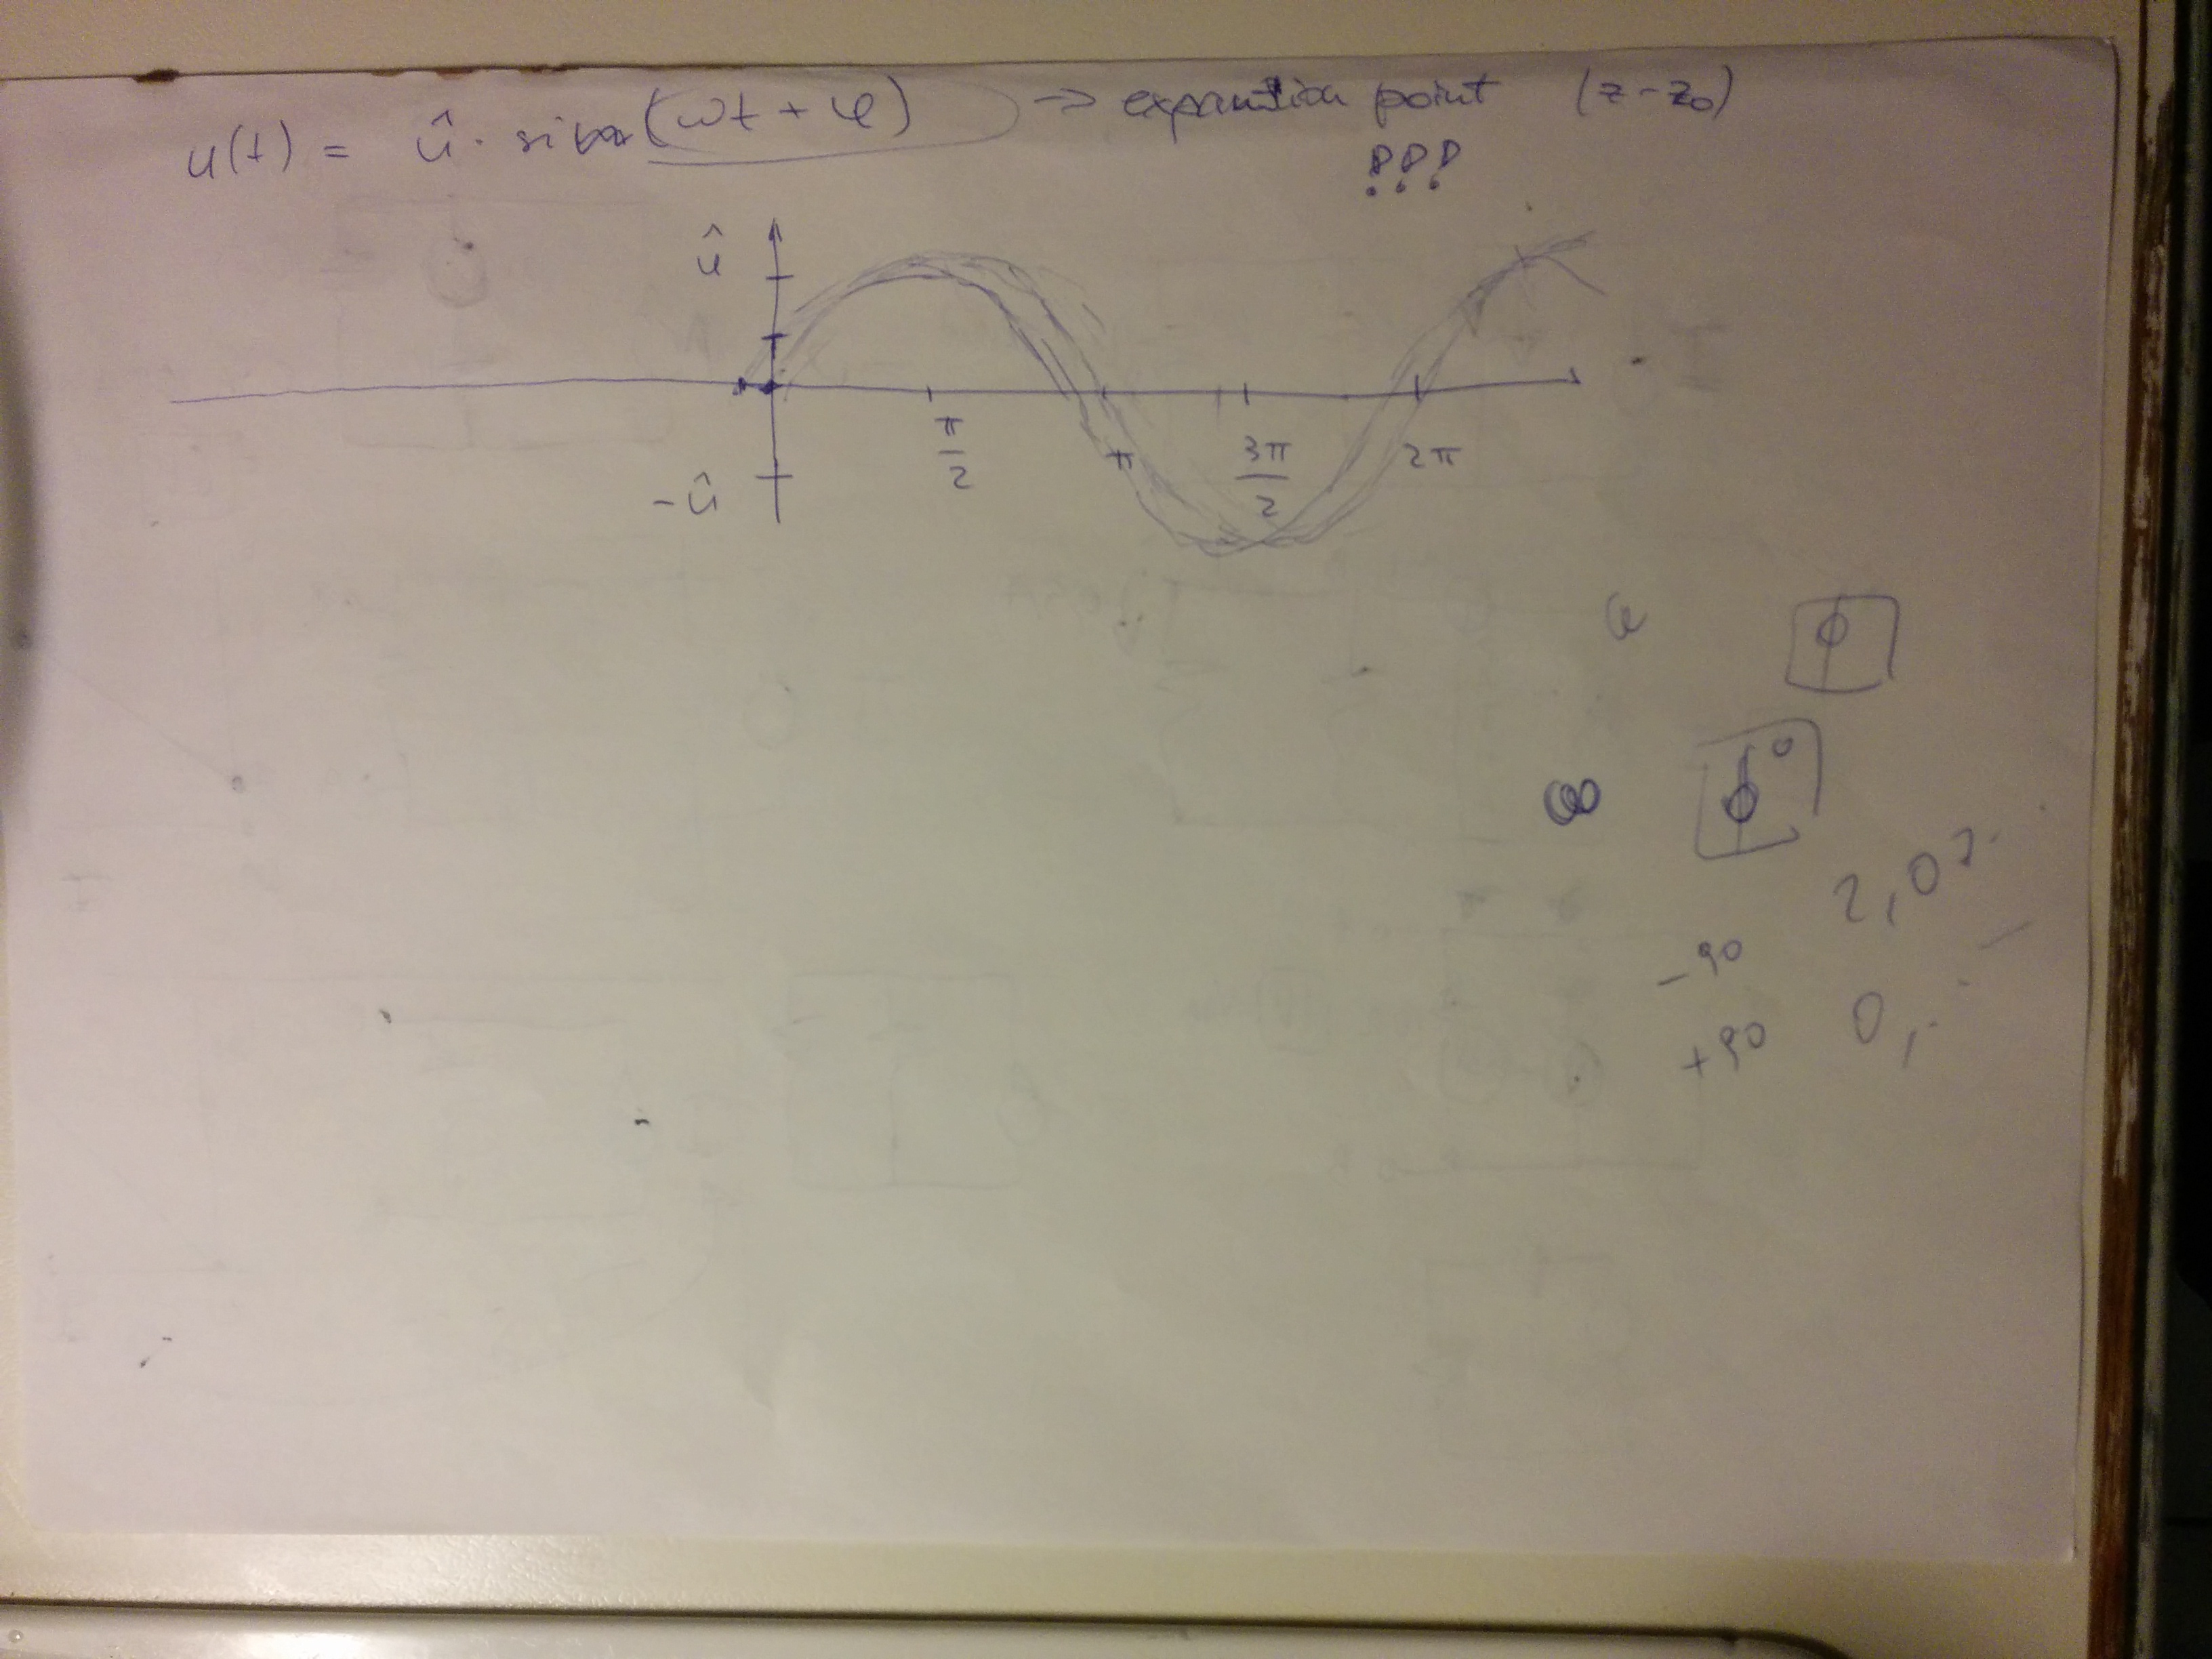 u(t) = û · sin (ωt + φ) → expansion point (z - z₀)
!!!
û
π/2 π 3π/2 2π
-û
φ
2,0
-90
+90 0,